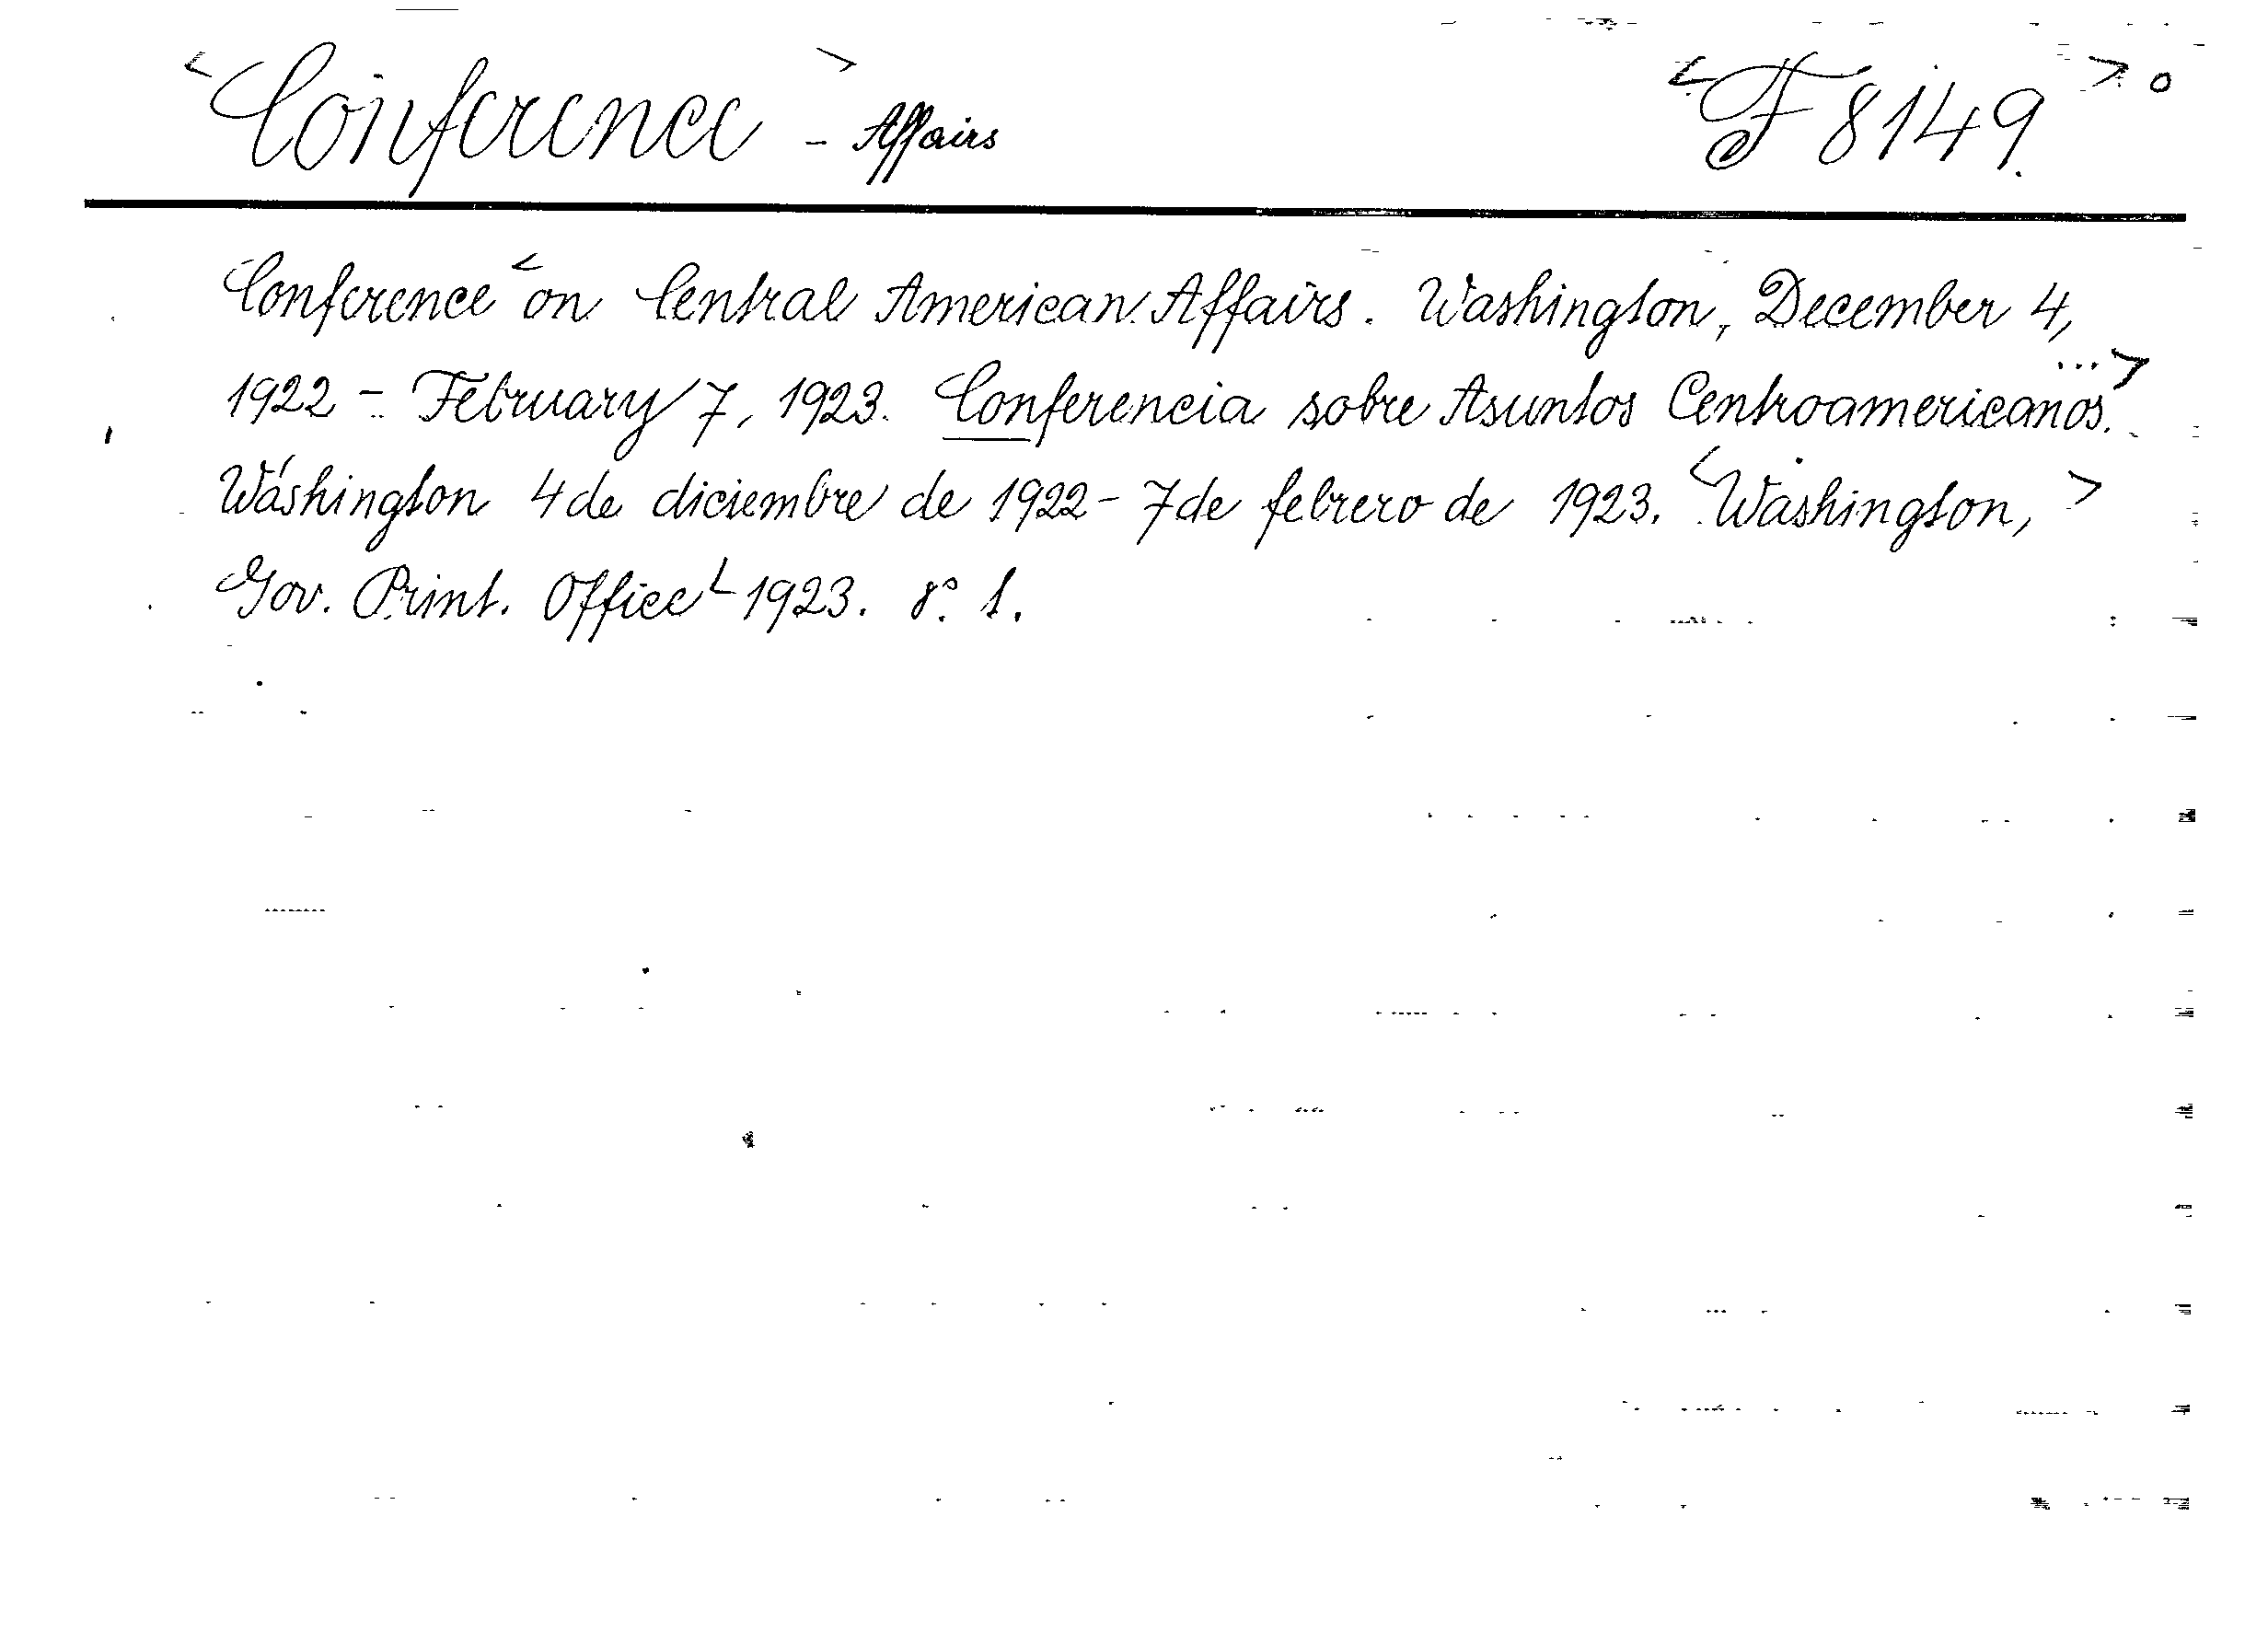 <Conference> - Affairs <F 8149.> o
Conference <on Central American Affairs. Washington, December 4,
1922 - February 7, 1923. Conferencia sobre Asuntos Centroamericanos. ...>
Wáshington 4 de diciembre de 1922 - 7 de febrero de 1923. <Washington,>
Gov. Print. Office L 1923. 8° 1.